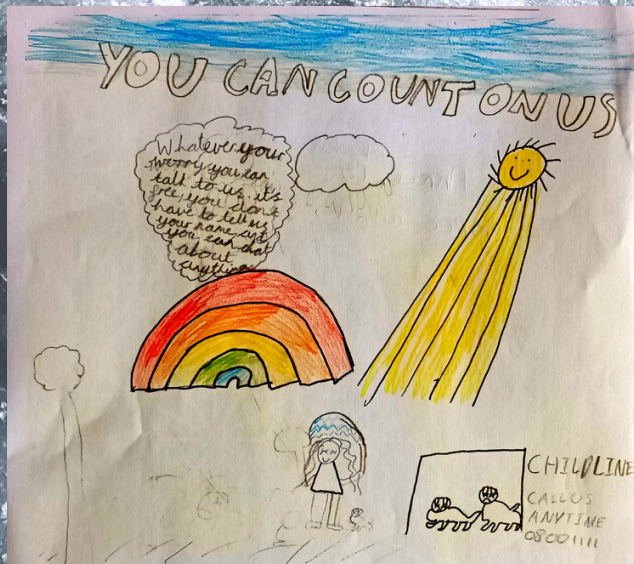 YOU CAN COUNT ON US
Whatever your
worry you can
talk to us, it's
free, you don't
have to tell us
your name, just
you can chat
about
anything
CHILDLINE
CALL US
ANYTIME
08001111